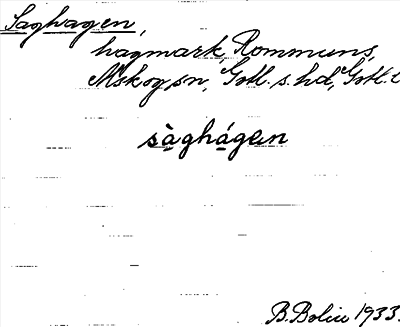 Saghagen,
hagmark, Rommuns,
M'skog sn, Gotl. s. hd, Gotl. l
sàghágen
B. Bolin 1933.